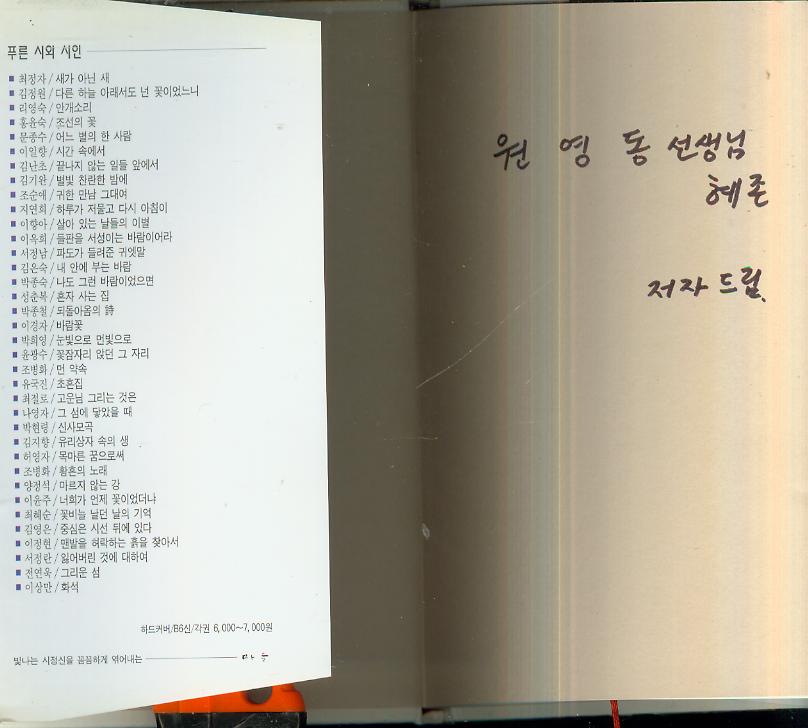 푸른 시와 시인
■ 최정자 / 새가 아닌 새
■ 김정원 / 다른 하늘 아래서도 넌 꽃이었느니
■ 리영숙 / 안개소리
■ 홍윤숙 / 조선의 꽃
■ 문종수 / 어느 별의 한 사람
■ 이일향 / 시간 속에서
■ 김난초 / 끝나지 않는 일들 앞에서
■ 김기완 / 별빛 찬란한 밤에
■ 조순애 / 귀한 만남 그대여
■ 지연희 / 하루가 저물고 다시 아침이
■ 이향아 / 살아 있는 날들의 이별
■ 이옥희 / 들판을 서성이는 바람이어라
■ 서정남 / 파도가 들려준 귀엣말
■ 김은숙 / 내 안에 부는 바람
■ 박종숙 / 나도 그런 바람이었으면
■ 성춘복 / 혼자 사는 집
■ 박종철 / 되돌아옴의 詩
■ 이경자 / 바람꽃
■ 박희영 / 눈빛으로 먼빛으로
■ 윤광수 / 꽃잠자리 앉던 그 자리
■ 조병화 / 먼 약속
■ 유국진 / 초혼집
■ 최절로 / 고운님 그리는 것은
■ 나영자 / 그 섬에 닿았을 때
■ 박현령 / 신사모곡
■ 김지향 / 유리상자 속의 생
■ 허영자 / 목마른 꿈으로써
■ 조병화 / 황혼의 노래
■ 양정석 / 마르지 않는 강
■ 이윤주 / 너희가 언제 꽃이었더냐
■ 최혜순 / 꽃비늘 날던 날의 기억
■ 김영은 / 중심은 시선 뒤에 있다
■ 이정현 / 맨발을 허락하는 흙을 찾아서
■ 서정란 / 잃어버린 것에 대하여
■ 전연욱 / 그리운 섬
■ 이상만 / 화석
하드커버/B6신/각권 6,000~7,000원
빛나는 시정신을 꼼꼼하게 엮어내는 마을
원 영 동 선생님
혜존
저자 드림.